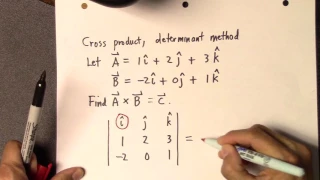 Cross product, determinant method
Let A⃗ = 1î + 2ĵ + 3k̂
B⃗ = -2î + 0ĵ + 1k̂
Find A⃗ × B⃗ = C⃗.
| î ĵ k̂ |
| 1 2 3 | =
| -2 0 1 |